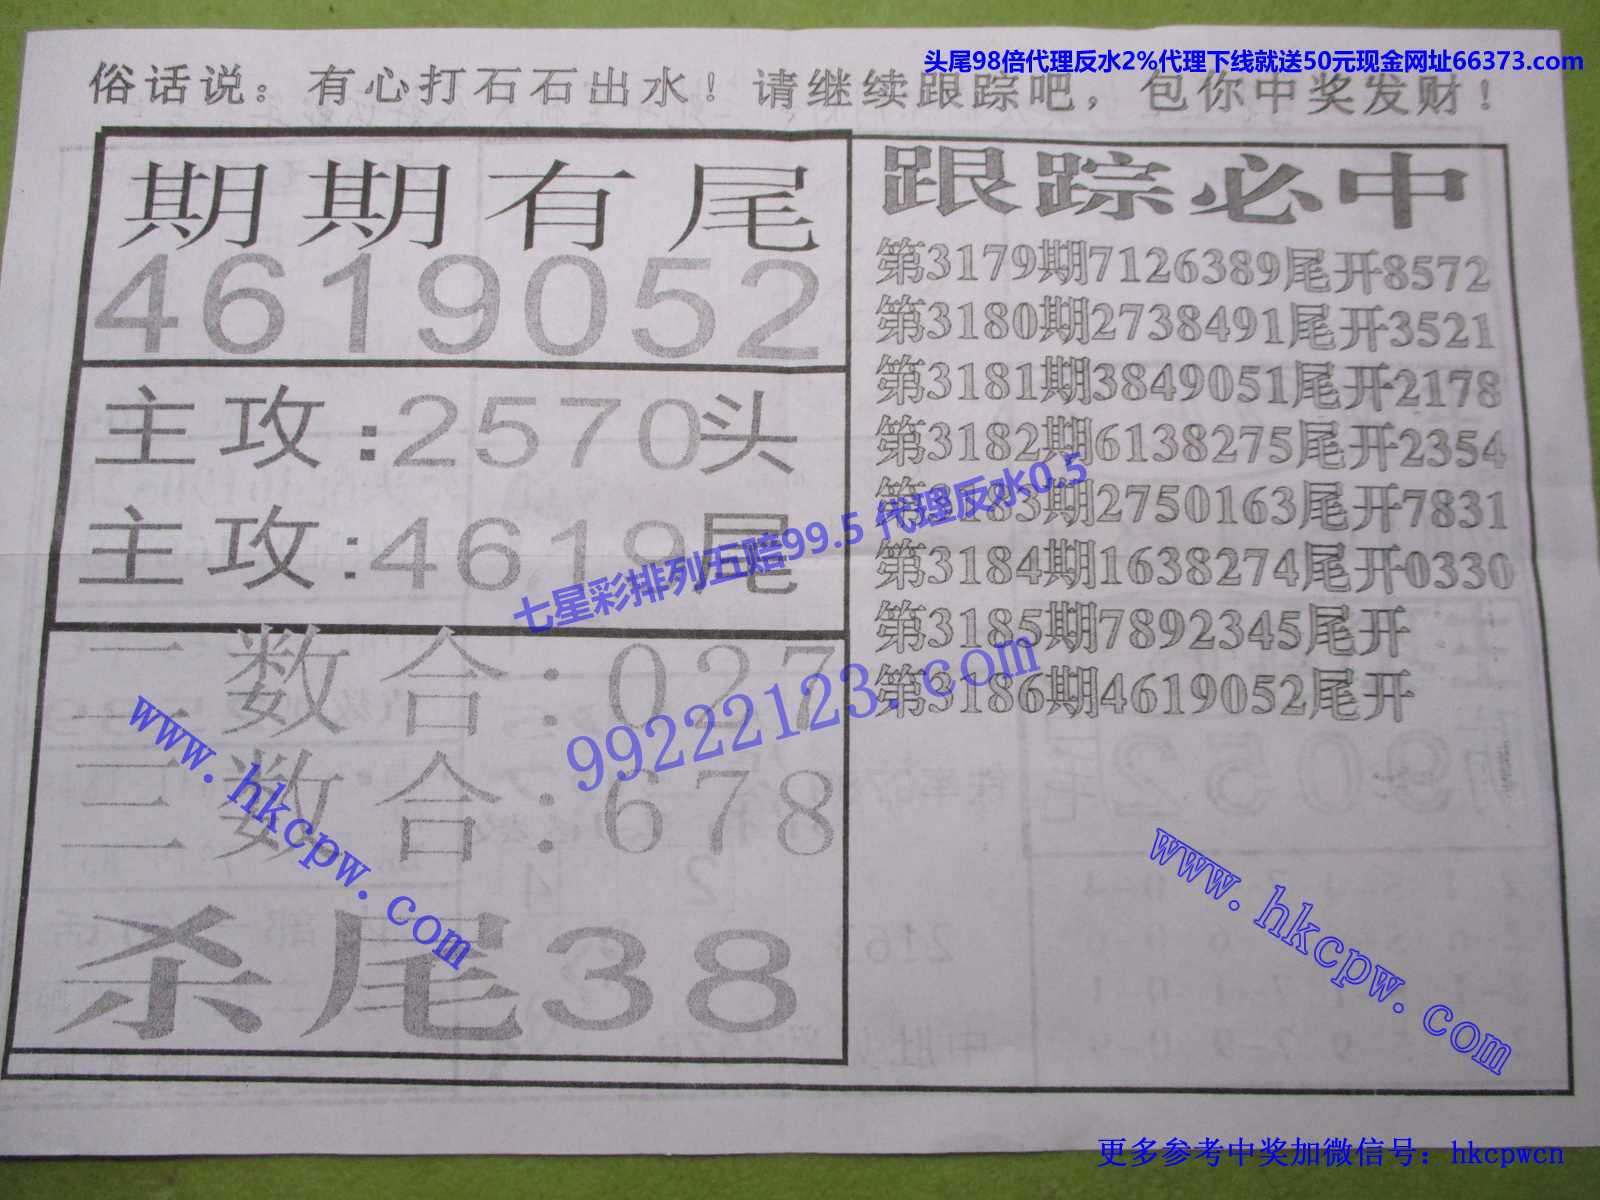 头尾98倍代理反水2%代理下线就送50元现金网址66373.com
俗话说：有心打石石出水！请继续跟踪吧，包你中奖发财！
期期有尾
4619052
主攻:2570头
主攻:4619尾
二数合:027
三数合:678
杀尾38
跟踪必中
第3179期7126389尾开8572
第3180期2738491尾开3521
第3181期3849051尾开2178
第3182期6138275尾开2354
第3183期2750163尾开7831
第3184期1638274尾开0330
第3185期7892345尾开
第3186期4619052尾开
七星彩排列五赔99.5 代理反水0.5
99222123.com
www.hkcpw.com
www.hkcpw.com
更多参考中奖加微信号：hkcpwcn